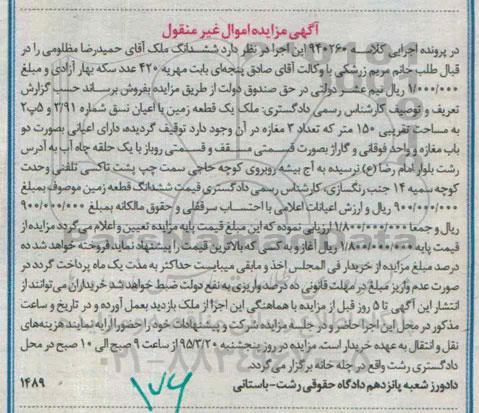 آگهی مزایده اموال غیر منقول
در پرونده اجرایی کلاسه ۹۴۰۲۶۰ این اجرا در نظر دارد ششدانگ ملک آقای حمیدرضا مظلومی را در
قبال طلب خانم مریم زرشکی با وکالت آقای صادق پنجه‌ای بابت مهریه ۴۲۰ عدد سکه بهار آزادی و مبلغ
۱/۰۰۰/۰۰۰ ریال نیم عشر دولتی در حق صندوق دولت از طریق مزایده بفروش برساند حسب گزارش
تعریف و توصیف کارشناس رسمی دادگستری: ملک یک قطعه زمین با اعیان نسق شماره ۳/۹۱ و ۵پ۲
به مساحت تقریبی ۱۵۰ متر که تعداد ۳ مغازه در آن وجود دارد توقیف گردیده، دارای اعیانی بصورت دو
باب مغازه و واحد فوقانی و گاراژ بصورت قسمتی مسقف و قسمتی روباز با یک حلقه چاه آب به آدرس
رشت بلوار امام رضا (ع) نرسیده به آج بیشه روبروی کوچه حاجی سمت چپ پشت تاکسی تلفنی وحدت
کوچه سمیه ۱۴ جنب رنگسازی، کارشناس رسمی دادگستری قیمت ششدانگ قطعه زمین موصوف بمبلغ
۹۰۰/۰۰۰/۰۰۰ ریال و ارزش اعیانات اعلامی با احتساب سرقفلی و حقوق مالکانه بمبلغ ۹۰۰/۰۰۰/۰۰۰
ریال و جمعا ۱/۸۰۰/۰۰۰/۰۰۰ ارزیابی نموده که این مبلغ قیمت پایه مزایده تعیین و اعلام می‌گردد مزایده از
قیمت پایه ۱/۸۰۰/۰۰۰/۰۰۰ ریال آغاز و به کسی که بالاترین قیمت را پیشنهاد نماید فروخته خواهد شد ده
درصد مبلغ مزایده از خریدار فی المجلس اخذ و مابقی میبایست حداکثر به مدت یک ماه پرداخت گردد در
صورت عدم واریز مبلغ در مهلت قانونی ده درصد واریزی به نفع دولت ضبط خواهد شد خریداران می‌توانند از
انتشار این آگهی تا ۵ روز قبل از مزایده با هماهنگی این اجرا از ملک بازدید بعمل آورده و در تاریخ و ساعت
مذکور در محل این اجرا حاضر و در جلسه مزایده شرکت و پیشنهادات خود را حضورا ارایه نمایند هزینه‌های
نقل و انتقال به عهده خریدار است. مزایده در روز پنجشنبه ۹۵/۳/۲۰ از ساعت ۹ صبح الی ۱۰ صبح در محل
دادگستری رشت واقع در چله خانه برگزار می‌گردد
دادورز شعبه پانزدهم دادگاه حقوقی رشت-باستانی ۱۴۸۹
۱۷۶